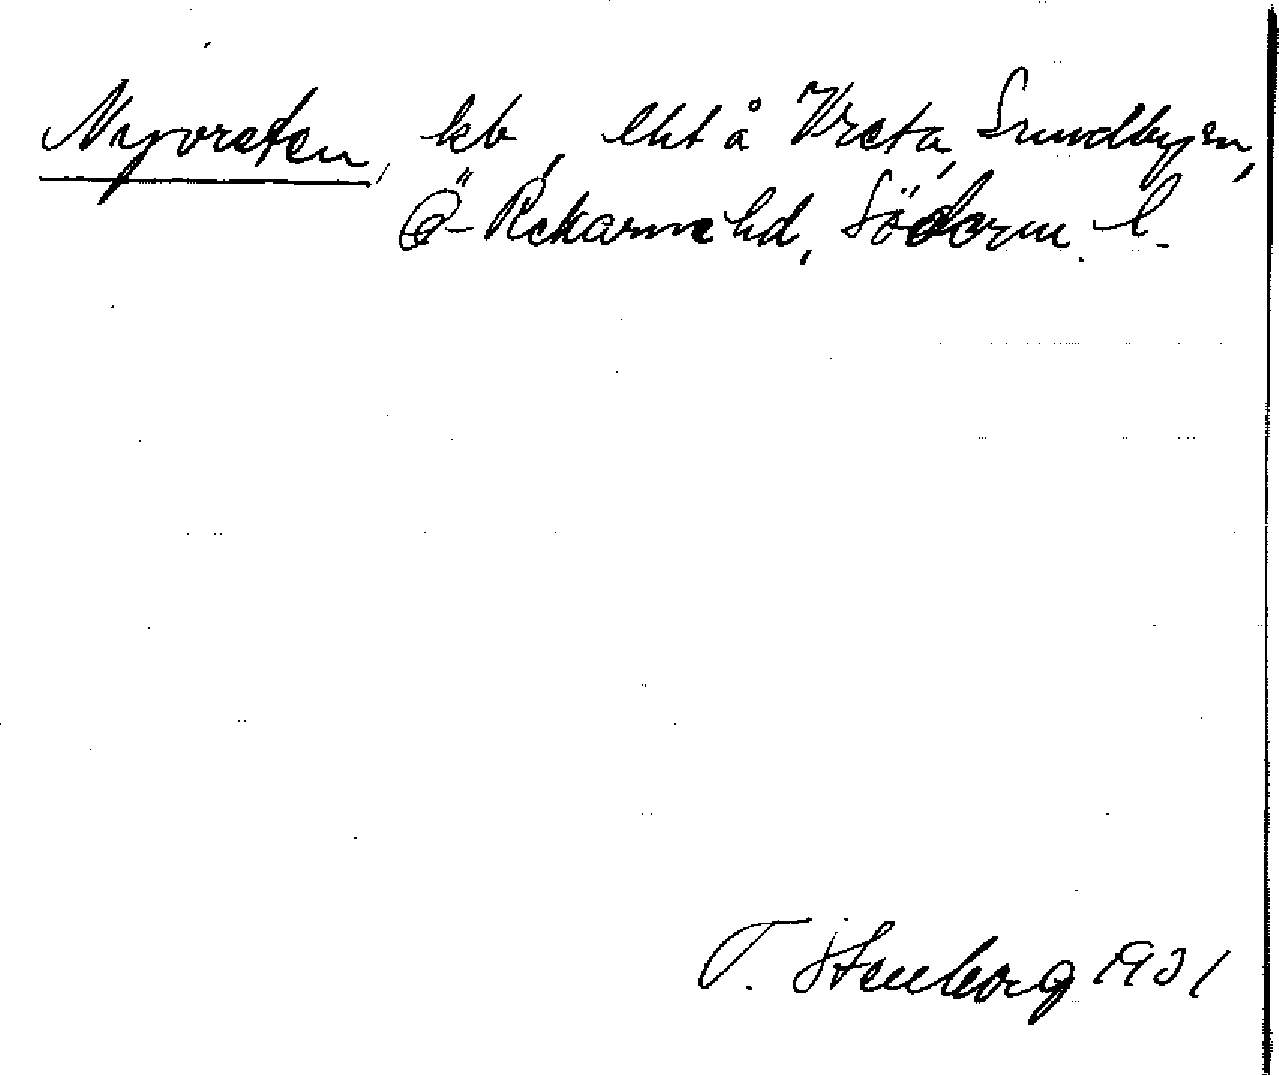 Nyvreten, kb, lht å Vreta, Sundbysn,
Ö-Rekarne hd, Söderm. l.
T. Stenborg 1931